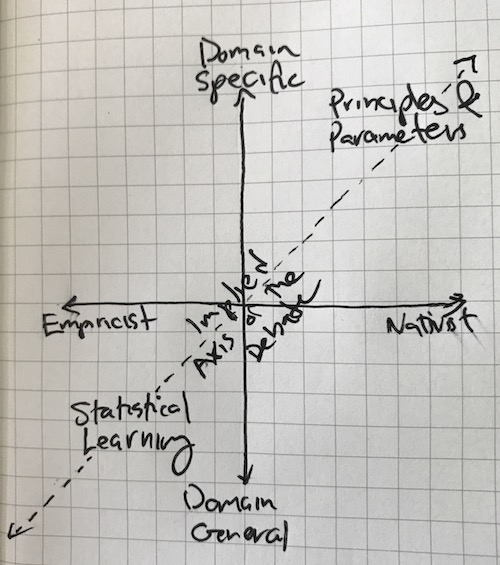 Domain
Specific
Principles &
Parameters
Implied
Axis of the
Debate
Empiricist
Nativist
Statistical
Learning
Domain
General